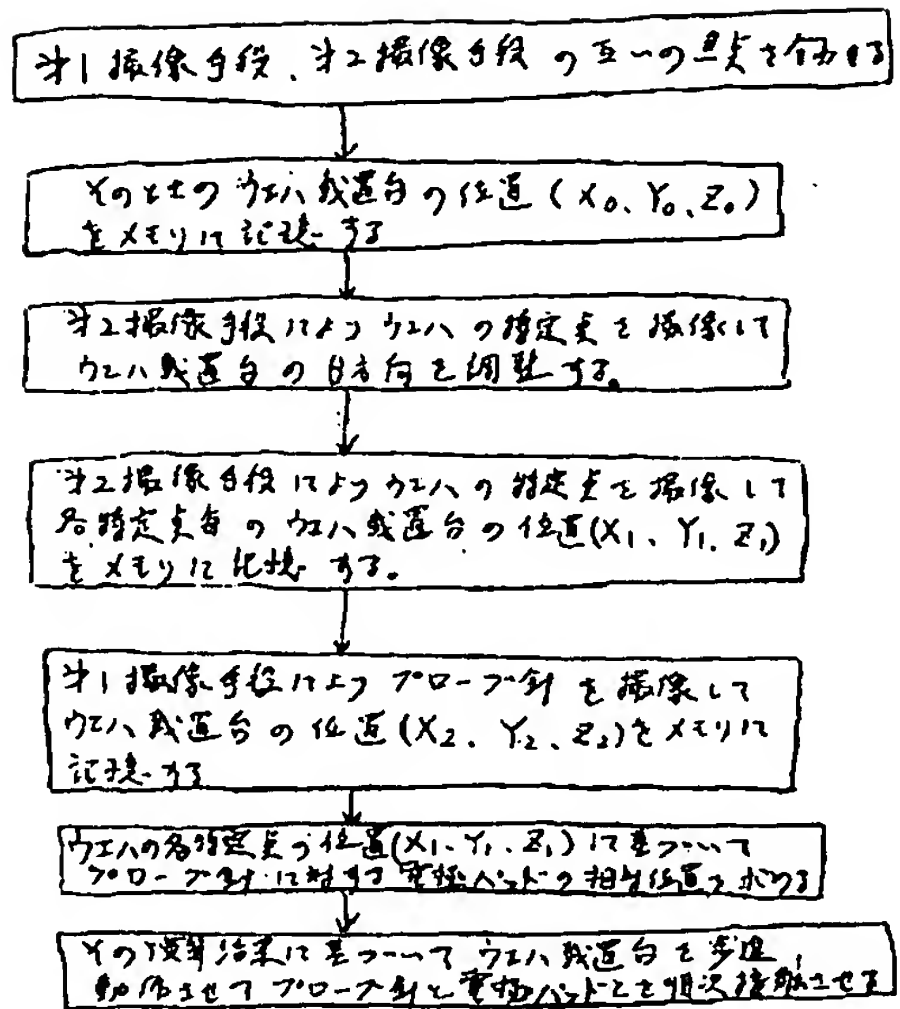 才1撮像手段、才2撮像手段の互いの焦点を合わせる
そのときのウエハ載置台の位置(X₀、Y₀、Z₀)
をメモリに記憶する
才2撮像手段によりウエハの特定点を撮像して
ウエハ載置台のθ方向を調整する。
才2撮像手段によりウエハの特定点を撮像して
各特定点毎のウエハ載置台の位置(X₁、Y₁、Z₁)
をメモリに記憶する。
才1撮像手段によりプローブ針を撮像して
ウエハ載置台の位置(X₂、Y₂、Z₂)をメモリに
記憶する
ウエハの各特定点の位置(X₁、Y₁、Z₁)に基づいて
プローブ針に対する電極パッドの相対位置を求める
その演算結果に基づいてウエハ載置台を歩進
動作させてプローブ針と電極パッドとを順次接触させる